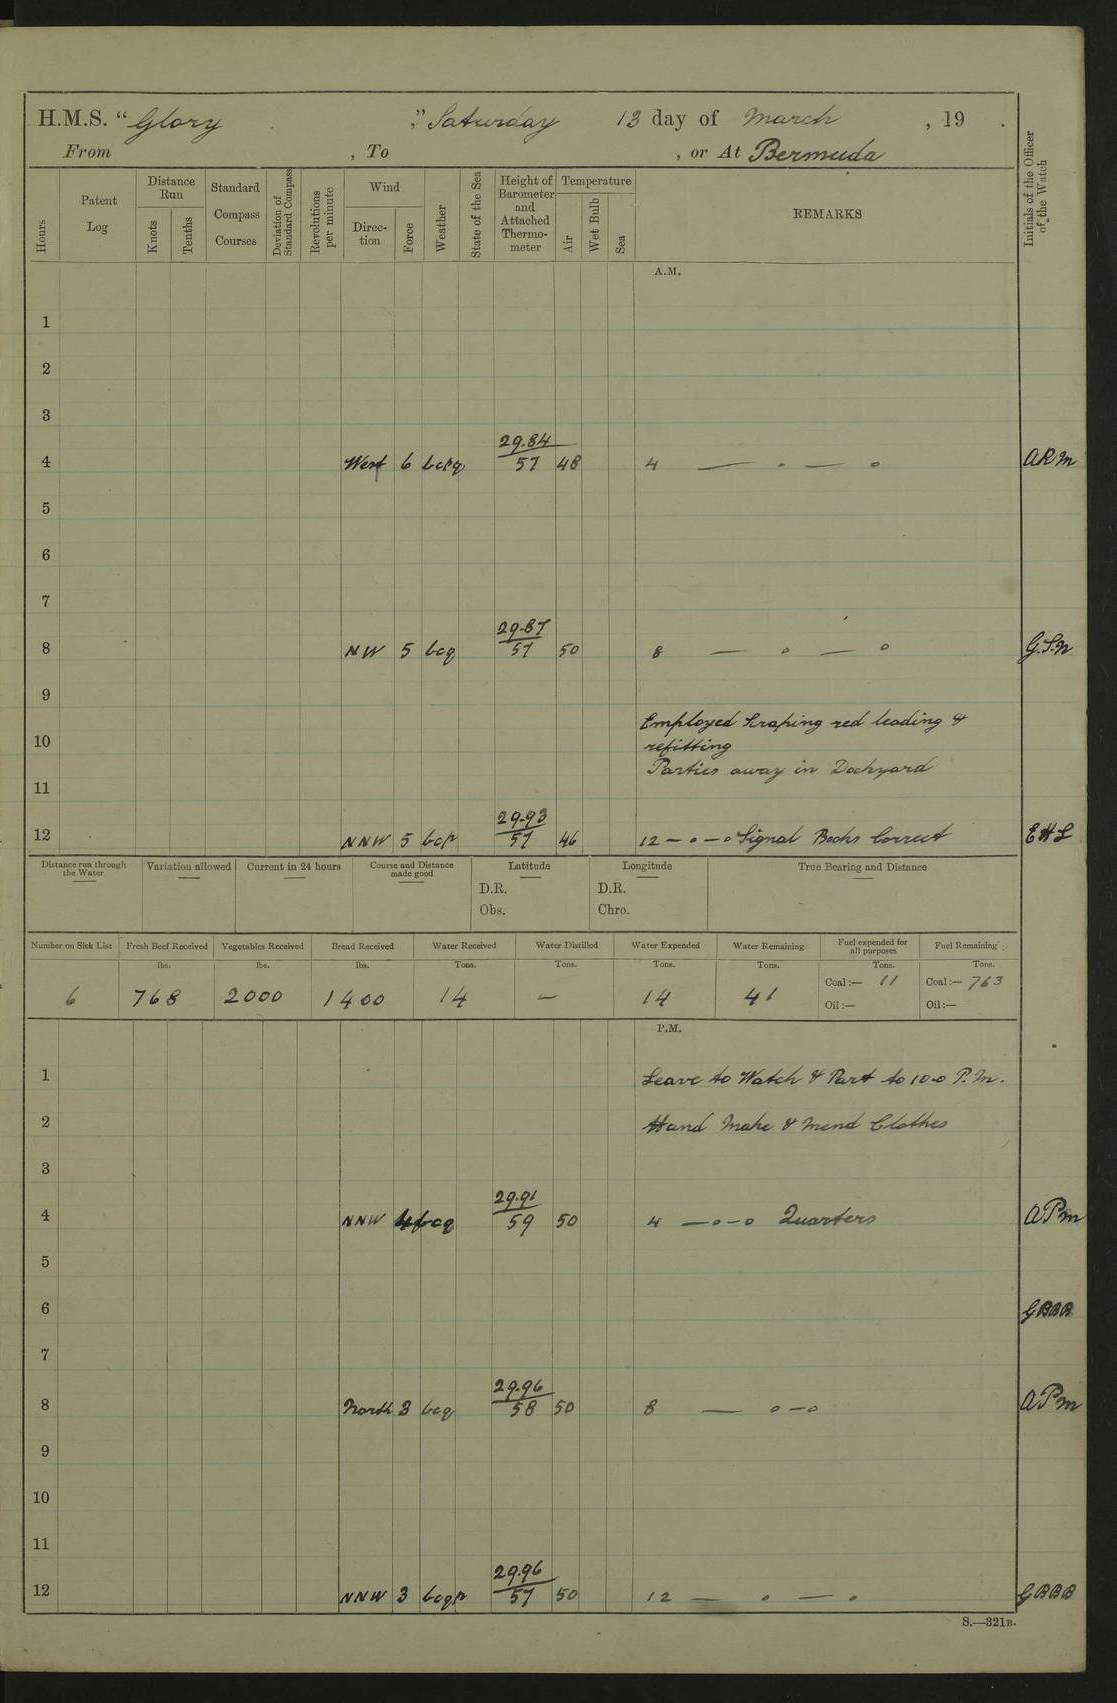 H.M.S. "Glory ," Saturday 13 day of March , 19 .
From , To , or At Bermuda
Hours
Patent Log
Distance Run
Knots
Tenths
Standard Compass Courses
Deviation of Standard Compass
Revolutions per minute
Wind
Direction
Force
Weather
State of the Sea
Height of Barometer and Attached Thermometer
Temperature
Air
Wet Bulb
Sea
REMARKS
Initials of the Officer of the Watch
A.M.
1
2
3
29.84
4 West 6 bcpq 57 48 4 — o — o ARM
5
6
7
29.87
8 NW 5 bcq 57 50 8 — o — o G.S.N
9
Employed Scraping red leading &
10 refitting
Parties away in Dockyard
11
29.93
12 NNW 5 bcp 57 46 12 — o — o Signal Books Correct EHL
Distance run through the Water
Variation allowed
Current in 24 hours
Course and Distance made good
Latitude
D.R.
Obs.
Longitude
D.R.
Chro.
True Bearing and Distance
Number on Sick List Fresh Beef Received Vegetables Received Bread Received Water Received Water Distilled Water Expended Water Remaining Fuel expended for all purposes Fuel Remaining
lbs. lbs. lbs. Tons. Tons. Tons. Tons. Tons. Tons.
6 768 2000 1400 14 — 14 41 Coal:— 11 Coal:— 763
Oil:— Oil:—
P.M.
1 Leave to Watch & Part to 10-0 P.M.
2 Hand Make & Mend Clothes
3
29.91
4 NNW 4 bcq 59 50 4 — o — o Quarters APM
5
6 GBBB
7
29.96
8 North 3 bcq 58 50 8 — o — o APM
9
10
11
29.96
12 NNW 3 bcqp 57 50 12 — o — o GBBB
S.—321B.